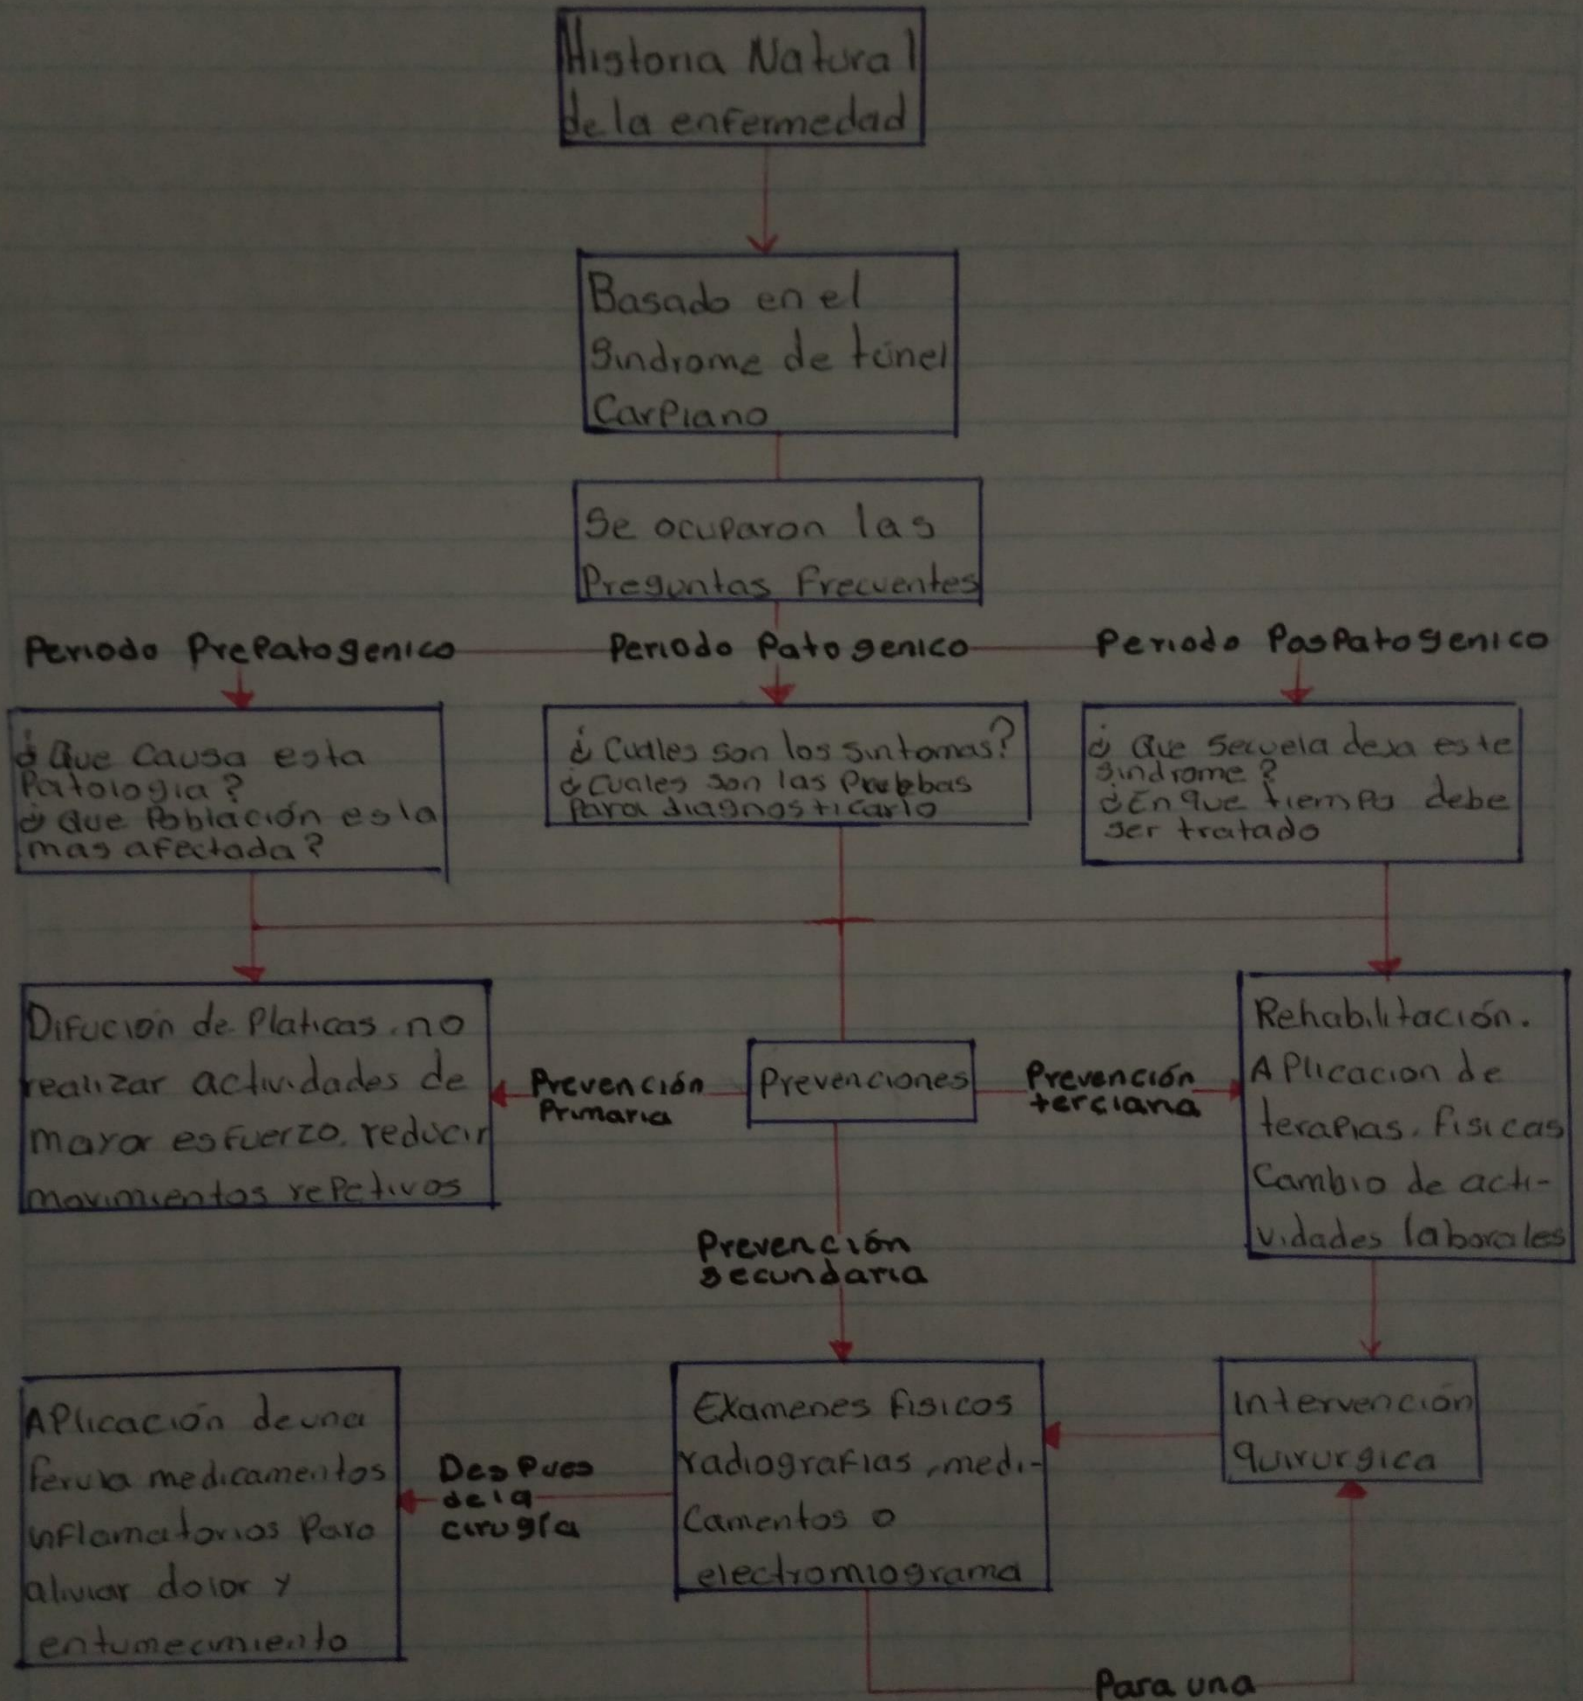 Historia Natural
de la enfermedad
Basado en el
Sindrome de túnel
Carpiano
Se ocuparon las
Preguntas Frecuentes
Periodo Prepatogenico
Periodo Patogenico
Periodo Pospatogenico
¿Que Causa esta
Patologia?
¿Que Población es la
mas afectada?
¿Cuales son los sintomas?
¿Cuales son las Pruebas
Para diagnosticarlo
¿Que Secuela deja este
sindrome?
¿En que tiempo debe
ser tratado
Difucion de Platicas. no
realizar actividades de
mayor esfuerzo. reducir
movimientos repetivos
Prevención
Primaria
Prevenciones
Prevención
terciaria
Rehabilitación.
Aplicacion de
terapias. fisicas
Cambio de acti-
vidades laborales
Prevención
secundaria
Aplicación de una
ferula medicamentos
inflamatorios Para
aliviar dolor y
entumecimiento
Despues
de la
cirugía
Examenes fisicos
radiografias, medi-
Camentos o
electromiograma
Intervención
quirurgica
Para una